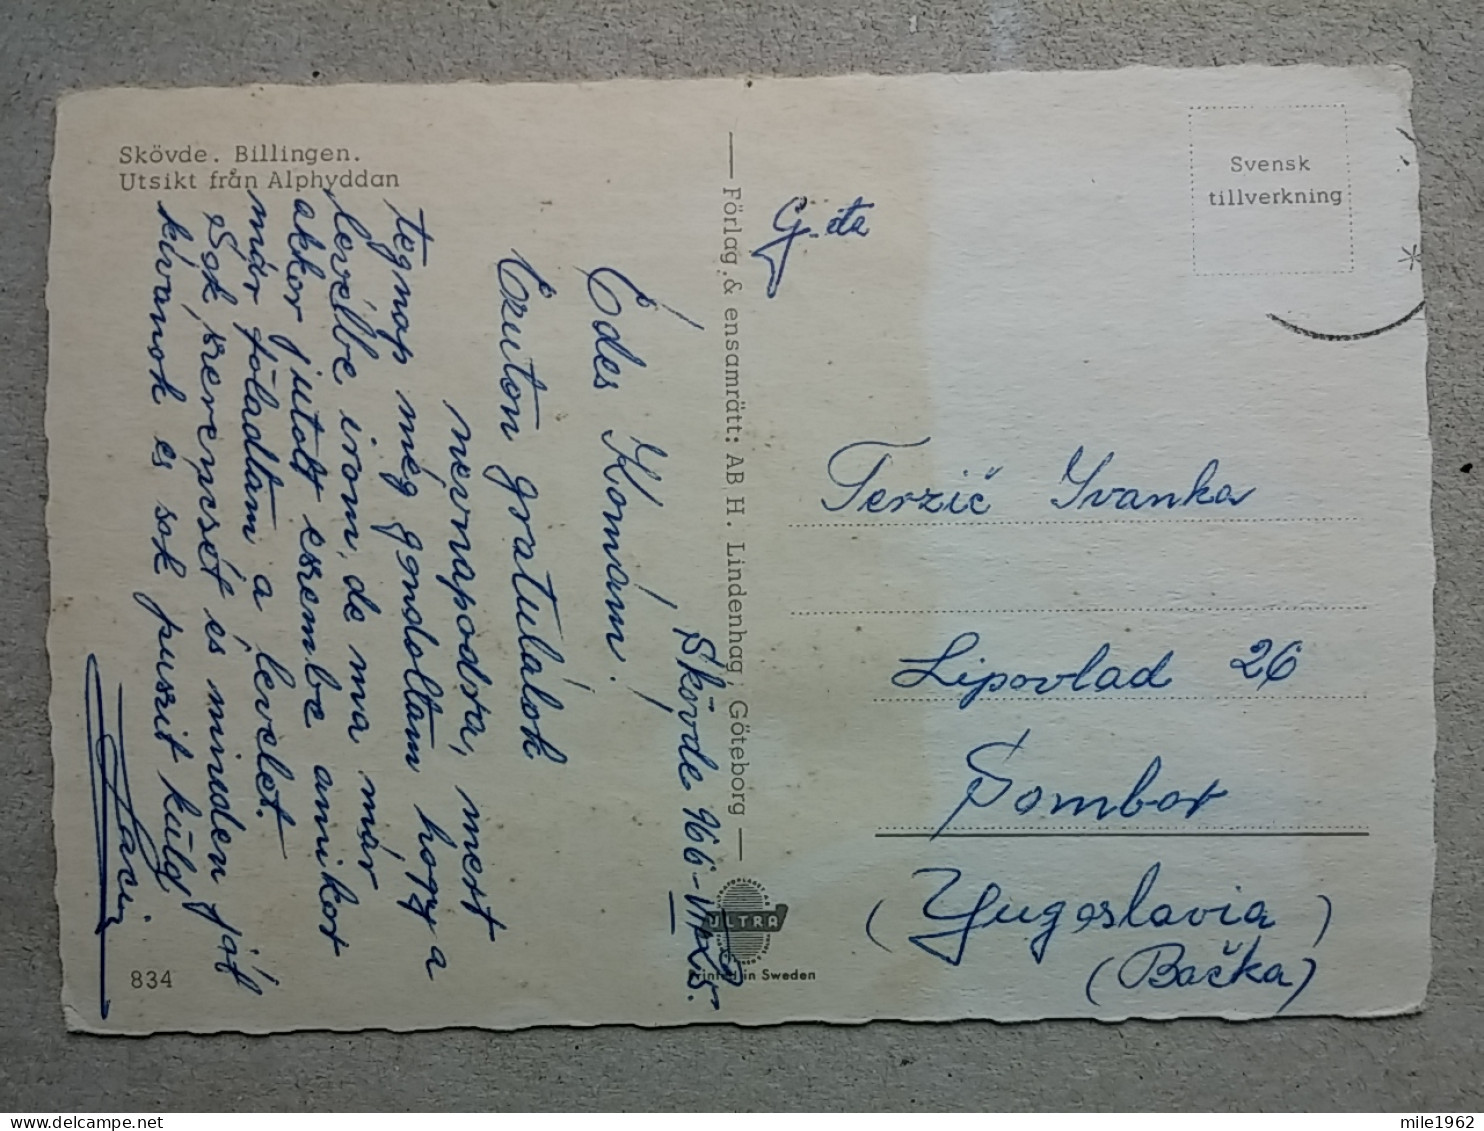 Skövde. Billingen.
Utsikt från Alphyddan
Skövde 966-
Édes Komám!
Ezuton gratulálok
nevnapodra, mert
tegnap még gondoltam hogy a
levélbe irom, de ma már
akkor jutott eszembe amikor
már föladtam a levelet.
Sok szerencsét és minden jót
kivánok es sok puszit küld
834
Förlag & ensamrätt: AB H. Lindenhag, Göteborg
ULTRA
Printed in Sweden
Svensk
tillverkning
Terzič Ivanka
Lipovlad 26
Sombor
(Yugoslavia)
(Bačka)
mile1962